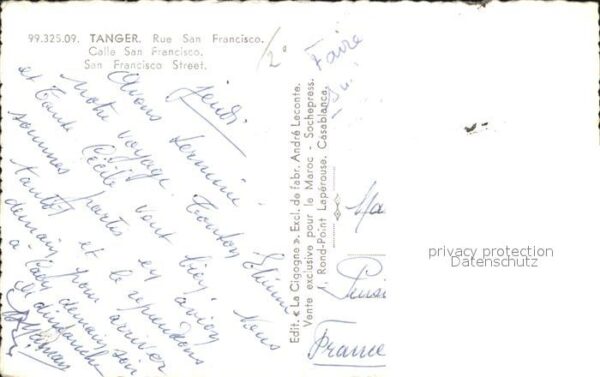 99.325.09. TANGER. Rue San Francisco.
Calle San Francisco.
San Francisco Street.
Jeudi
Avons terminé
notre voyage. Tonton Etienne
et Tante Cécile vont bien. Nous
sommes partis en avion
tantôt et le reprendrons
demain pour arriver
à demain soir
dimanche
Maman
Edit. « La Cigogne ». Excl. de fabr. André Leconte.
Vente exclusive pour le Maroc - Sochepress.
Rond-Point Lapérouse. Casablanca.
Faire
Ma
France
privacy protection
Datenschutz